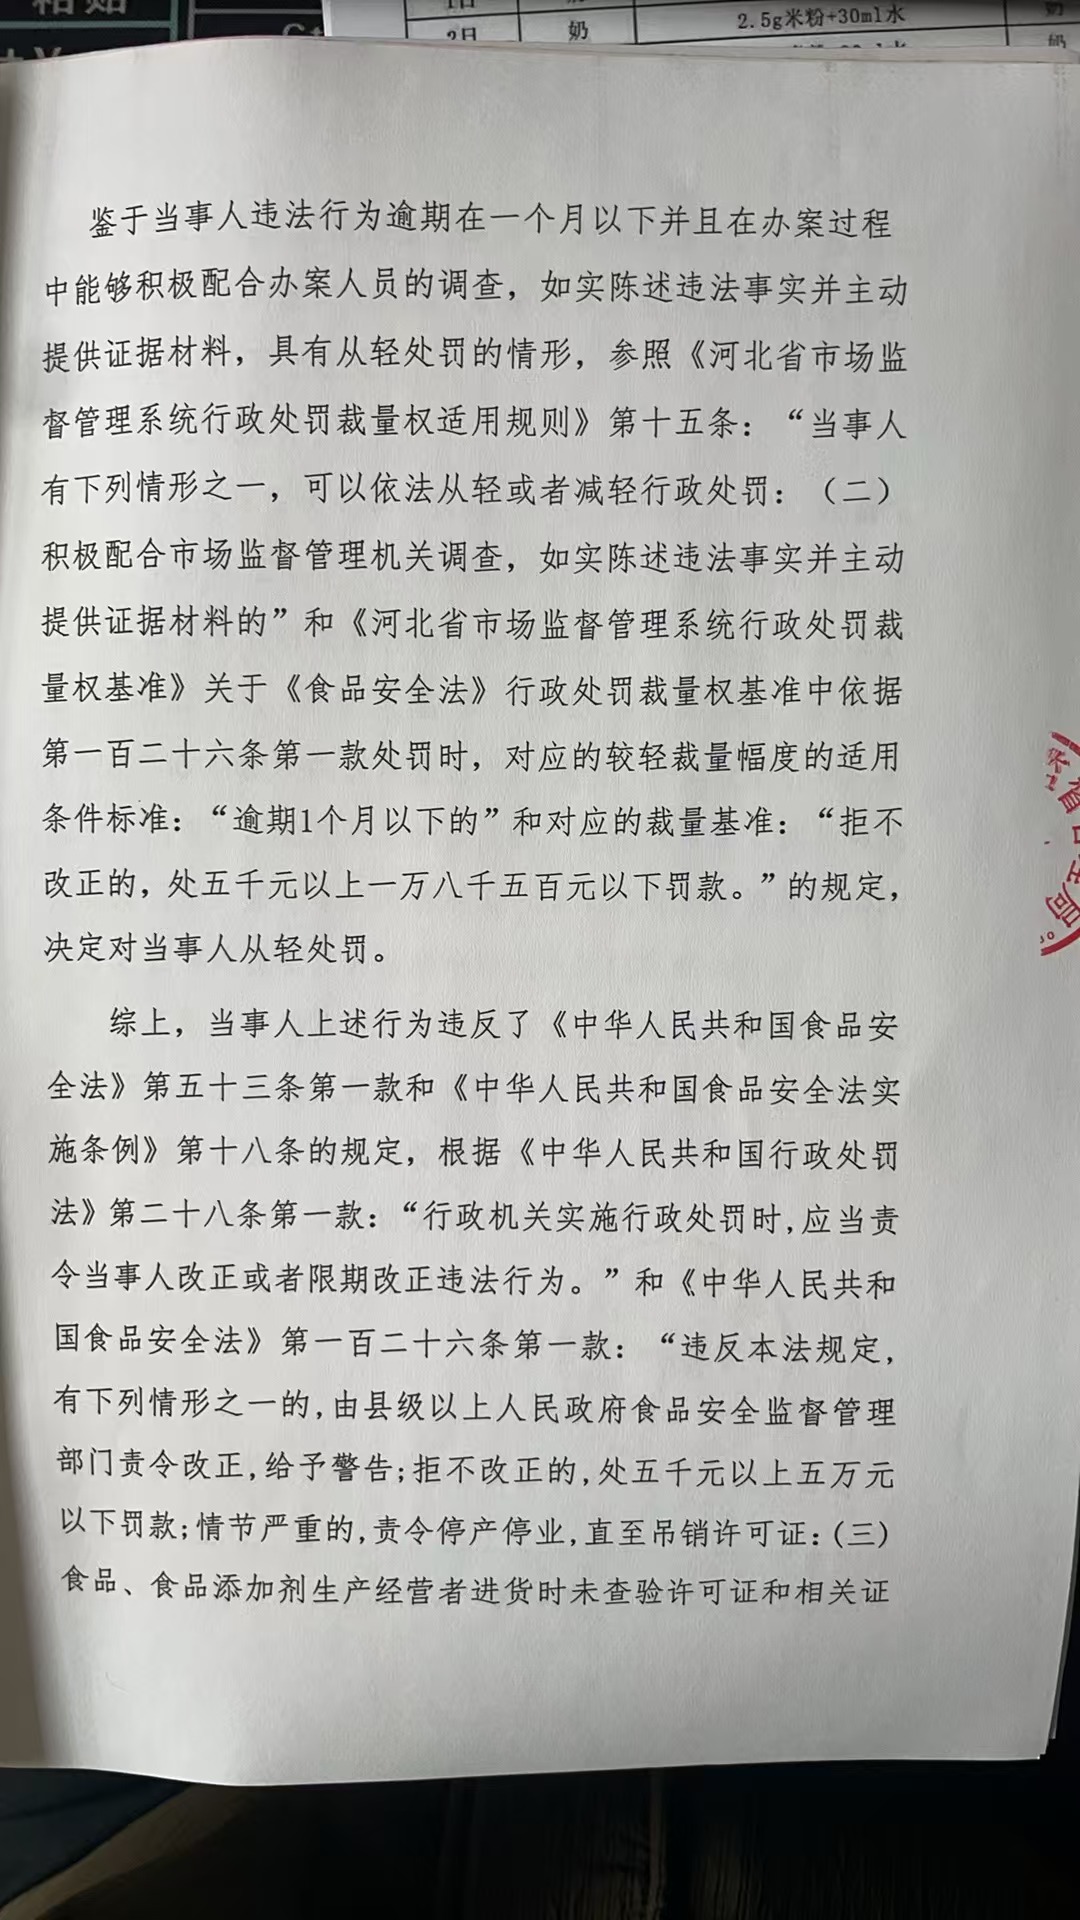 粘贴
1日
2.5g米粉+30ml水
奶
2日
奶
奶
鉴于当事人违法行为逾期在一个月以下并且在办案过程
中能够积极配合办案人员的调查，如实陈述违法事实并主动
提供证据材料，具有从轻处罚的情形，参照《河北省市场监
督管理系统行政处罚裁量权适用规则》第十五条：“当事人
有下列情形之一，可以依法从轻或者减轻行政处罚：（二）
积极配合市场监督管理机关调查，如实陈述违法事实并主动
提供证据材料的”和《河北省市场监督管理系统行政处罚裁
量权基准》关于《食品安全法》行政处罚裁量权基准中依据
第一百二十六条第一款处罚时，对应的较轻裁量幅度的适用
条件标准：“逾期1个月以下的”和对应的裁量基准：“拒不
改正的，处五千元以上一万八千五百元以下罚款。”的规定，
决定对当事人从轻处罚。
综上，当事人上述行为违反了《中华人民共和国食品安
全法》第五十三条第一款和《中华人民共和国食品安全法实
施条例》第十八条的规定，根据《中华人民共和国行政处罚
法》第二十八条第一款：“行政机关实施行政处罚时,应当责
令当事人改正或者限期改正违法行为。”和《中华人民共和
国食品安全法》第一百二十六条第一款：“违反本法规定,
有下列情形之一的,由县级以上人民政府食品安全监督管理
部门责令改正,给予警告;拒不改正的,处五千元以上五万元
以下罚款;情节严重的,责令停产停业,直至吊销许可证:(三)
食品、食品添加剂生产经营者进货时未查验许可证和相关证
局